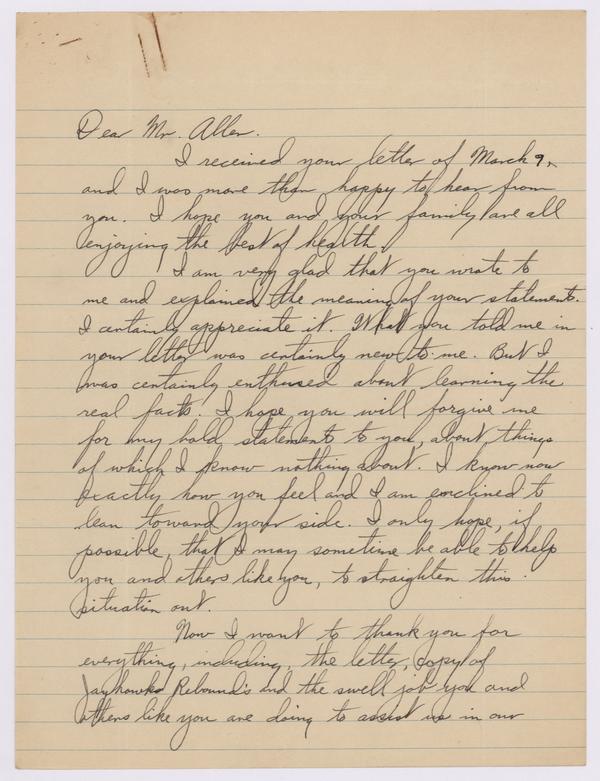 Dear Mr. Allen.
I received your letter of March 9,
and I was more than happy to hear from
you. I hope you and your family are all
enjoying the best of health.
I am very glad that you wrote to
me and explained the meaning of your statements.
I certainly appreciate it. What you told me in
your letter was certainly new to me. But I
was certainly enthused about learning the
real facts. I hope you will forgive me
for my bold statements to you, about things
of which I know nothing about. I know now
exactly how you feel and I am enclined to
lean toward your side. I only hope, if
possible, that I may sometime be able to help
you and others like you, to straighten this
situation out.
Now I want to thank you for
everything, including, the letter, copy of
Jayhawks Rebounds and the swell job you and
others like you are doing to assist us in our